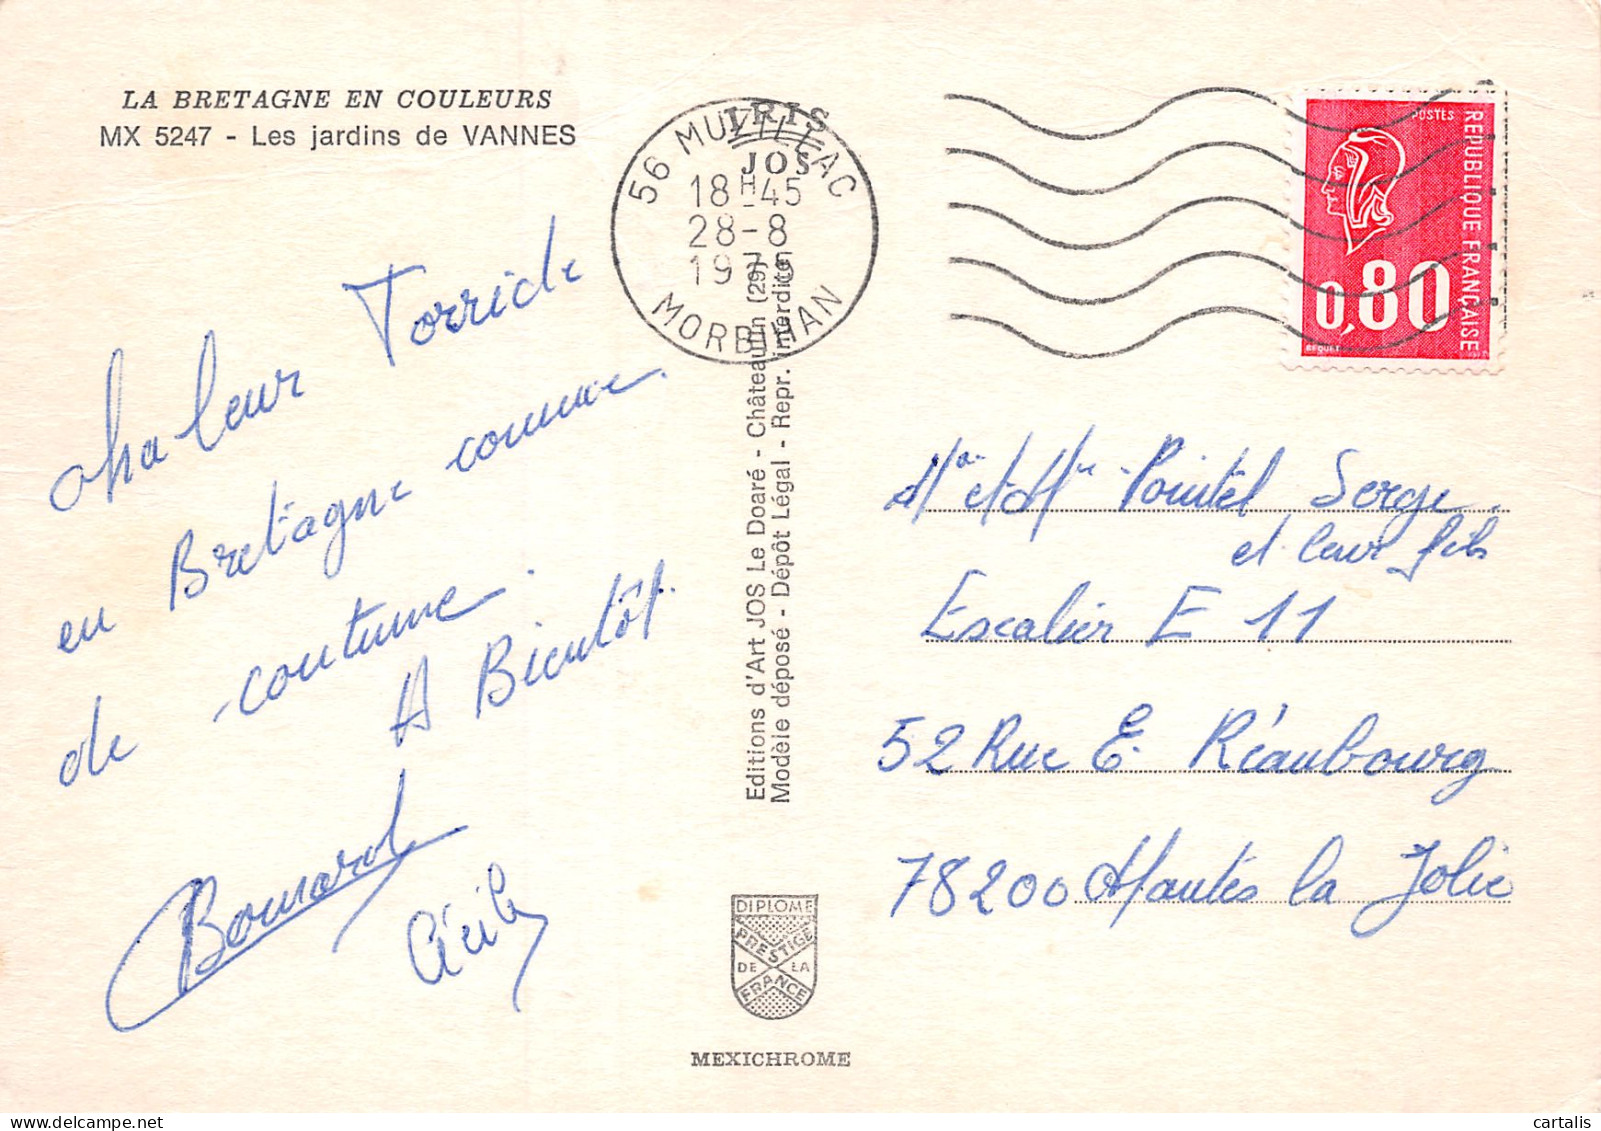 LA BRETAGNE EN COULEURS
MX 5247 - Les jardins de VANNES
chaleur Torride
en Bretagne comme
de coutume.
A Bientôt.
Bonnard
Cécile
IRIS
JOS
56 MUZILLAC
18H45
28-8
19
MORBIHAN
Editions d'Art JOS Le Doaré - Châteaulin (29)
Modèle déposé - Dépôt Légal - Repr. interdite
DIPLOME
PRESTIGE
DE LA
FRANCE
MEXICHROME
POSTES
REPUBLIQUE FRANÇAISE
0,80
BEQUET
Mr et Mme Pointel Serge
et leur fils
Escalier E 11
52 Rue E. Réaubourg
78200 Mantes la Jolie
cartalis